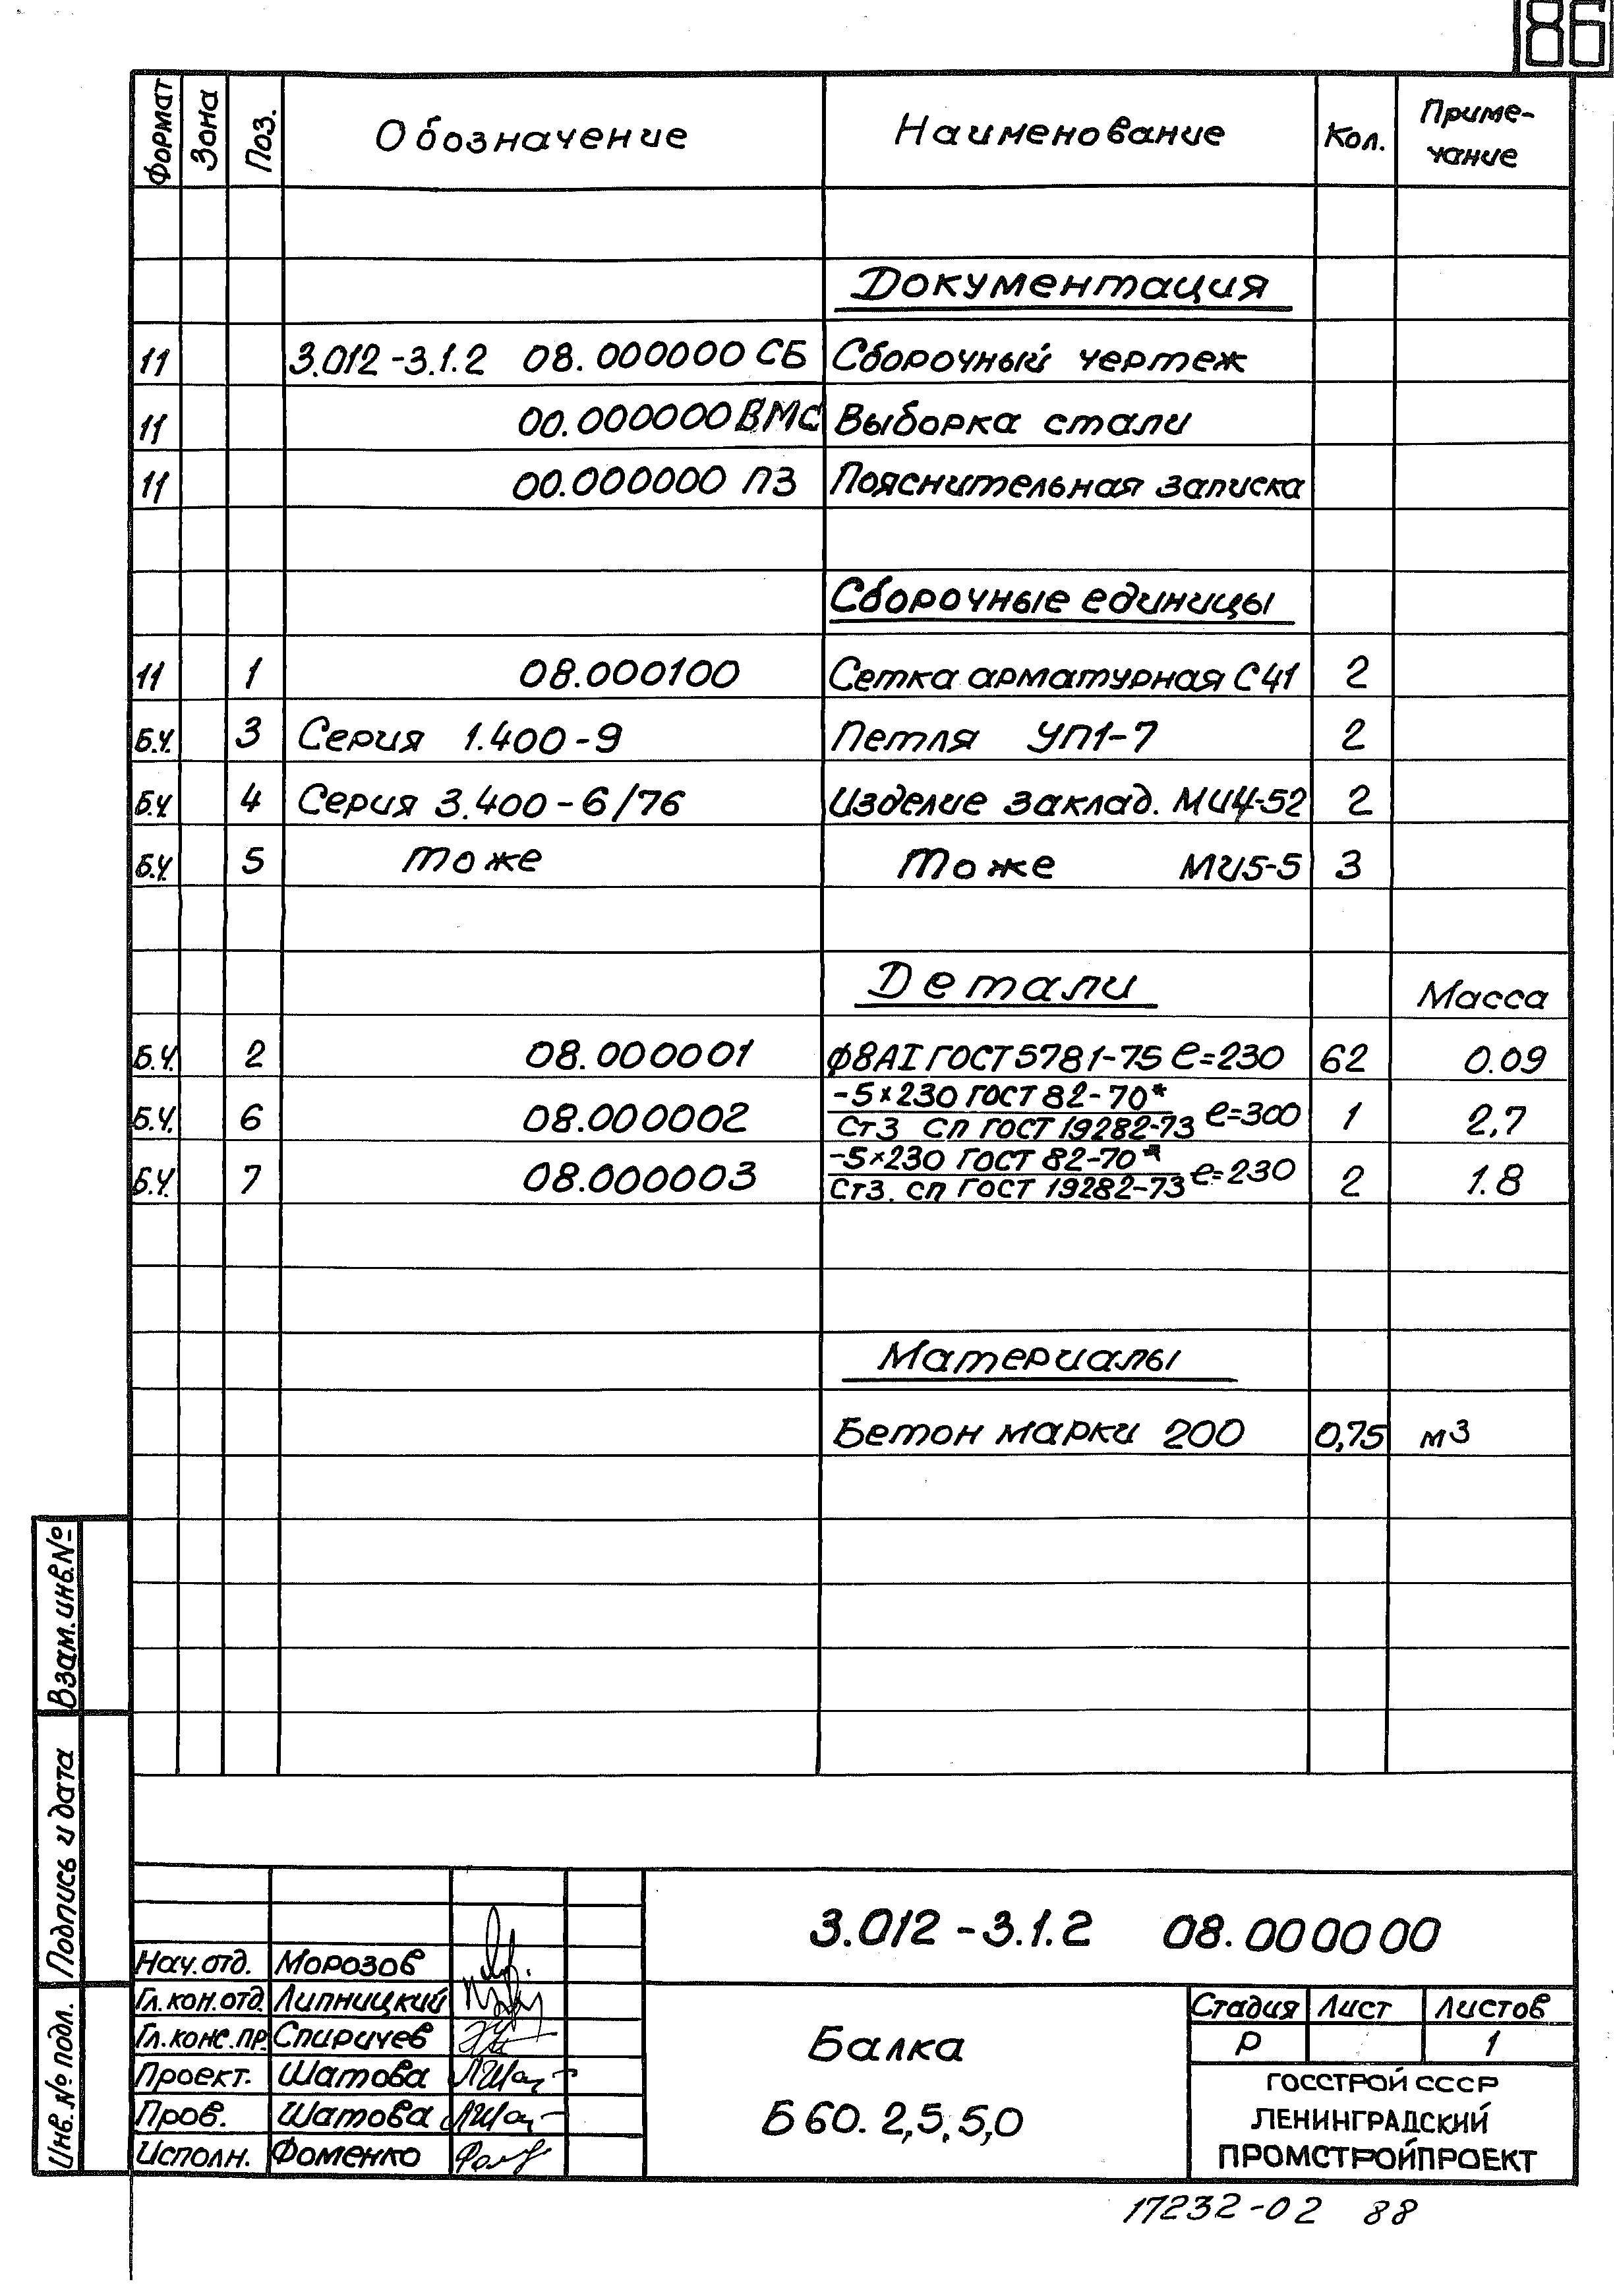 86
Формат Зона Поз. Обозначение Наименование Кол. Приме-
чание
Документация
11 3.012-3.1.2 08.000000 СБ Сборочный чертеж
11 00.000000 ВМС Выборка стали
11 00.000000 ПЗ Пояснительная записка
Сборочные единицы
11 1 08.000100 Сетка арматурная С41 2
Б.Ч. 3 Серия 1.400-9 Петля УП1-7 2
Б.Ч 4 Серия 3.400-6/76 Изделие заклад. МИ4-52 2
Б.Ч. 5 тоже тоже МИ5-5 3
Детали Масса
Б.Ч. 2 08.000001 ф8АI ГОСТ 5781-75 ℓ=230 62 0.09
Б.Ч. 6 08.000002 -5×230 ГОСТ 82-70* ℓ=300 1 2,7
Ст3 сп ГОСТ 19282-73
Б.Ч. 7 08.000003 -5×230 ГОСТ 82-70* ℓ=230 2 1.8
Ст3. сп ГОСТ 19282-73
Материалы
Бетон марки 200 0,75 м3
Взам. инв. №
Подпись и дата
Инв. № подл.
3.012-3.1.2 08.000000
Нач. отд. Морозов
Гл. кон. отд. Липницкий
Гл. конс. пр. Спиричев
Проект. Шатова
Пров. Шатова
Исполн. Фоменко
Балка
Б 60. 2,5. 5,0
Стадия Лист Листов
Р 1
ГОССТРОЙ СССР
ЛЕНИНГРАДСКИЙ
ПРОМСТРОЙПРОЕКТ
17232-02 88